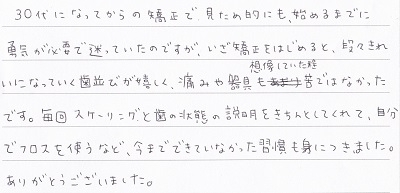 30代になってからの矯正で、見ため的にも、始めるまでに
勇気が必要で迷っていたのですが、いざ矯正をはじめると、段々きれ
いになっていく歯並びが嬉しく、痛みや器具も想像していた程苦ではなかった
です。毎回スケーリングと歯の状態の説明をきちんとしてくれて、自分
でフロスを使うなど、今までできていなかった習慣も身につきました。
ありがとうございました。